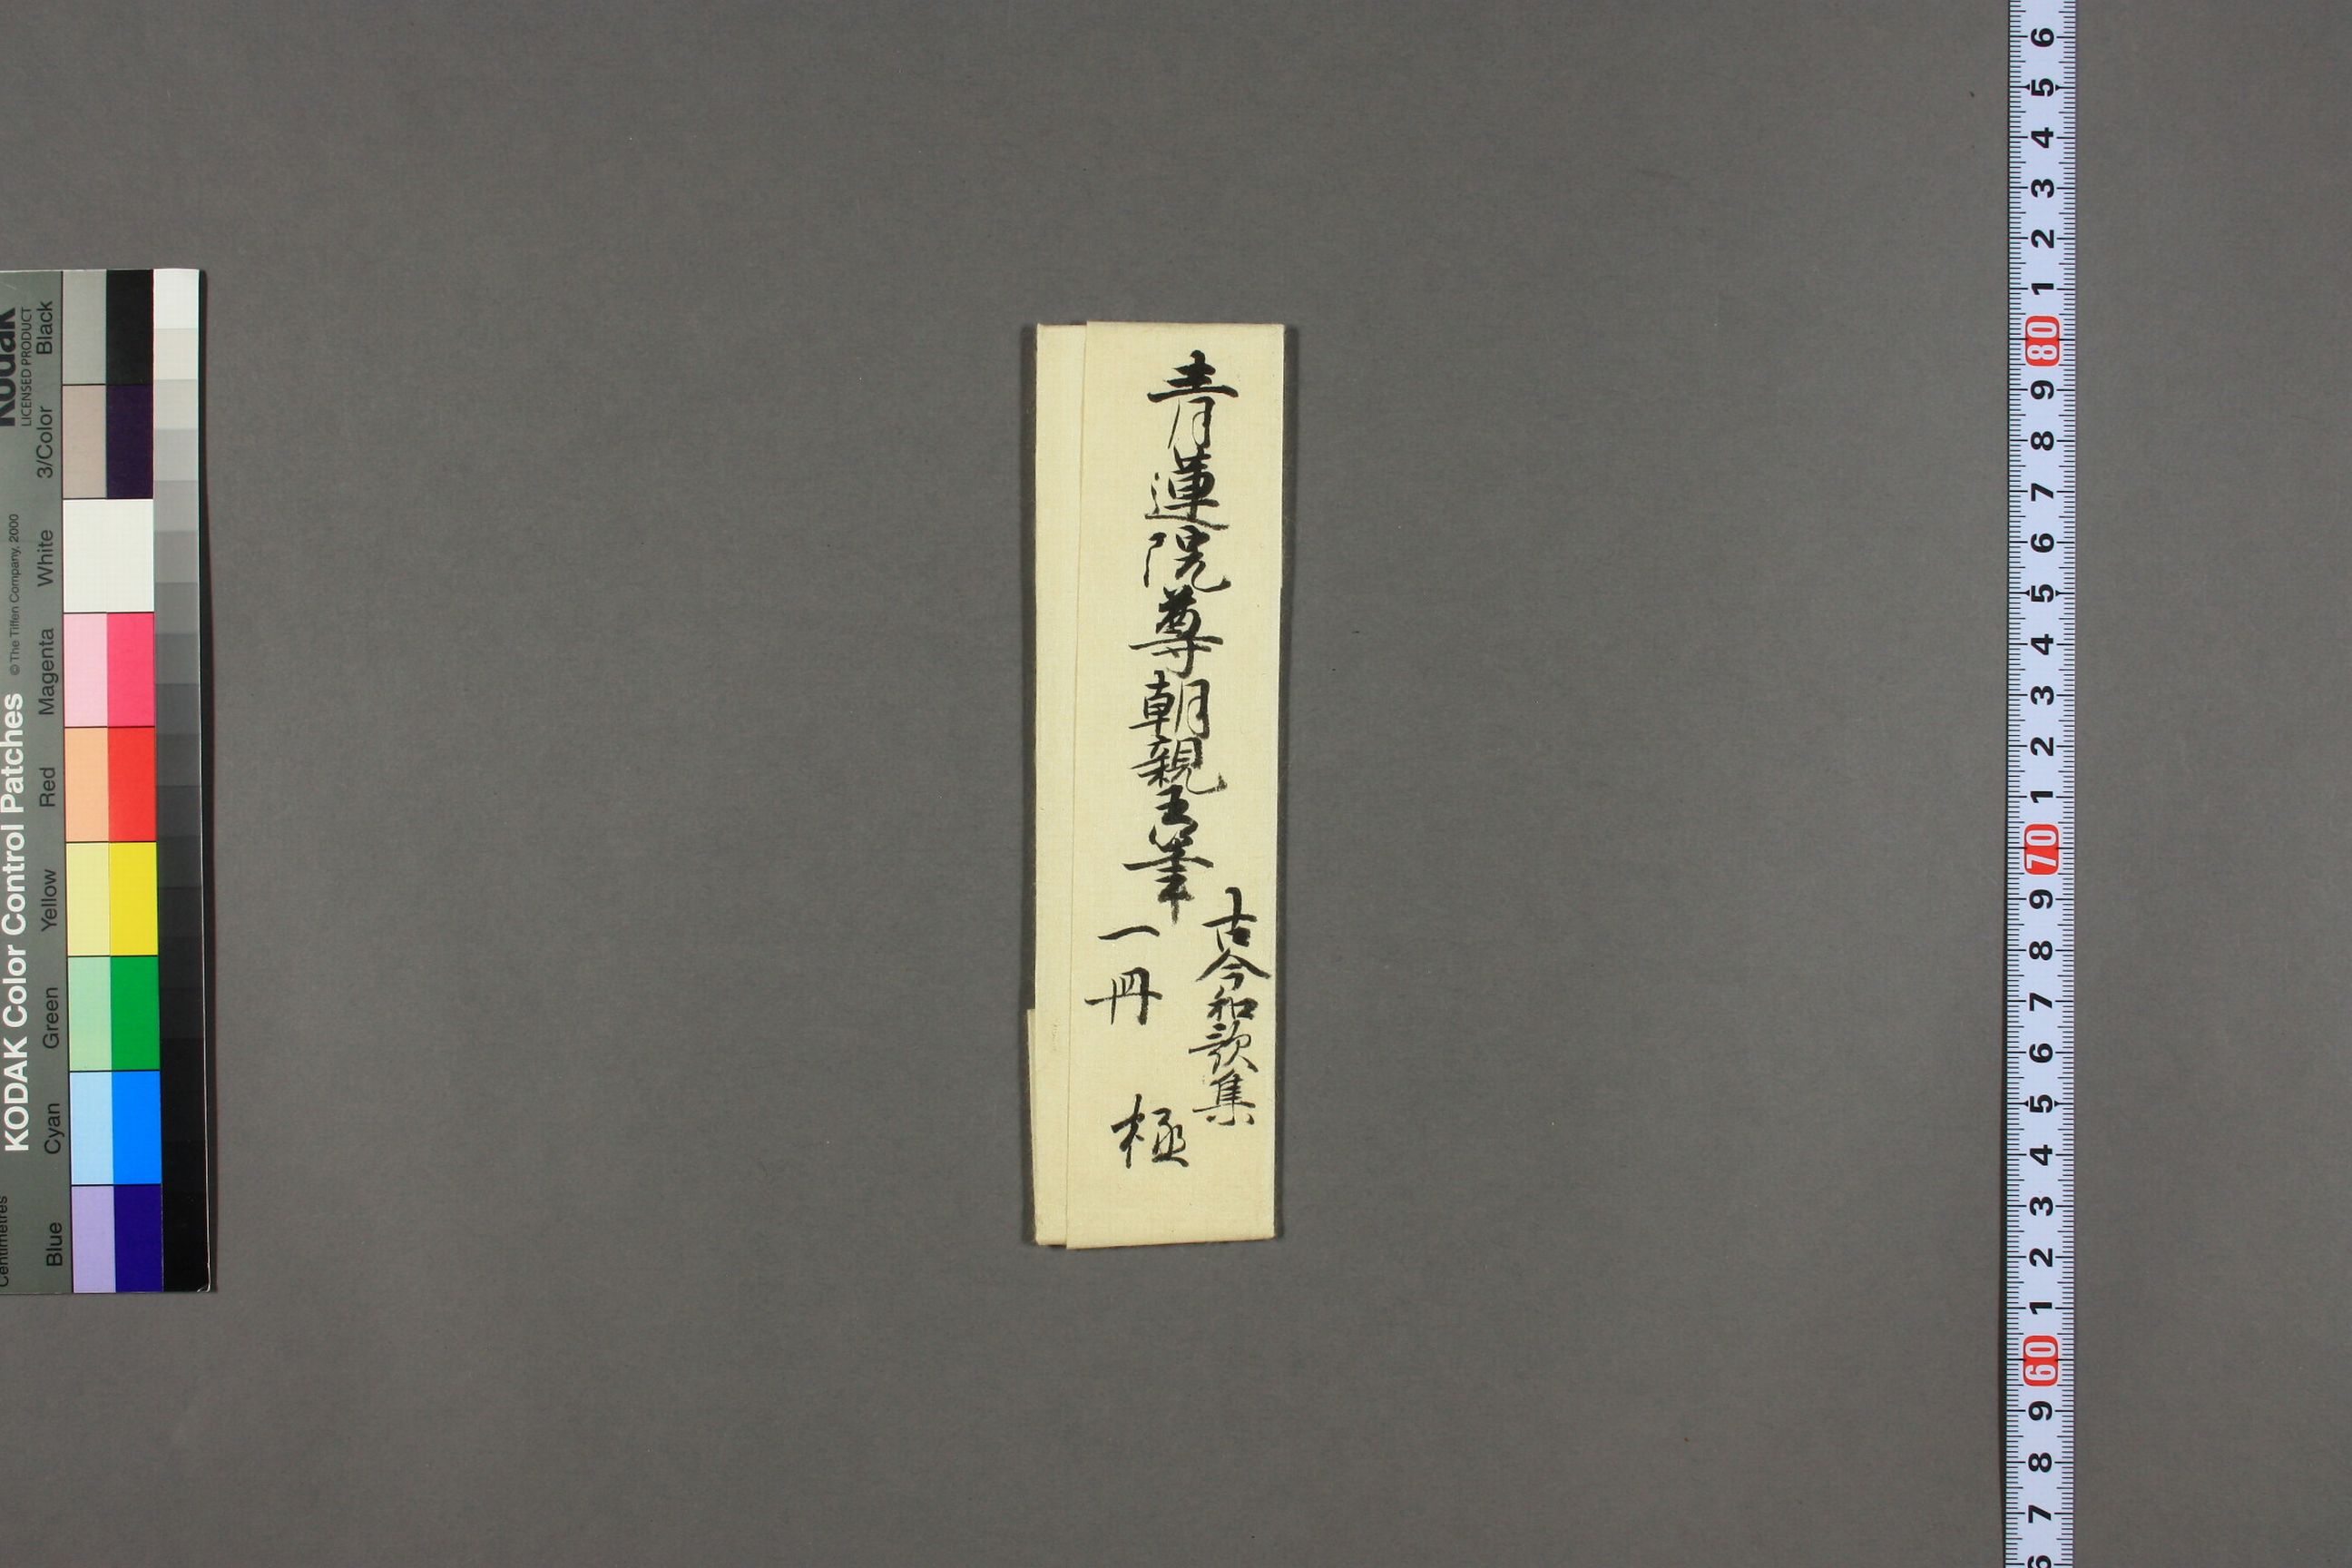 青蓮院尊朝親王筆
古今和歌集
一冊
極
KODAK Color Control Patches
©The Tiffen Company, 2000
Kodak
LICENSED PRODUCT
Centimetres
Blue
Cyan
Green
Yellow
Red
Magenta
White
3/Color
Black
6
5
4
3
2
1
80
9
8
7
6
5
4
3
2
1
70
9
8
7
6
5
4
3
2
1
60
9
8
7
6